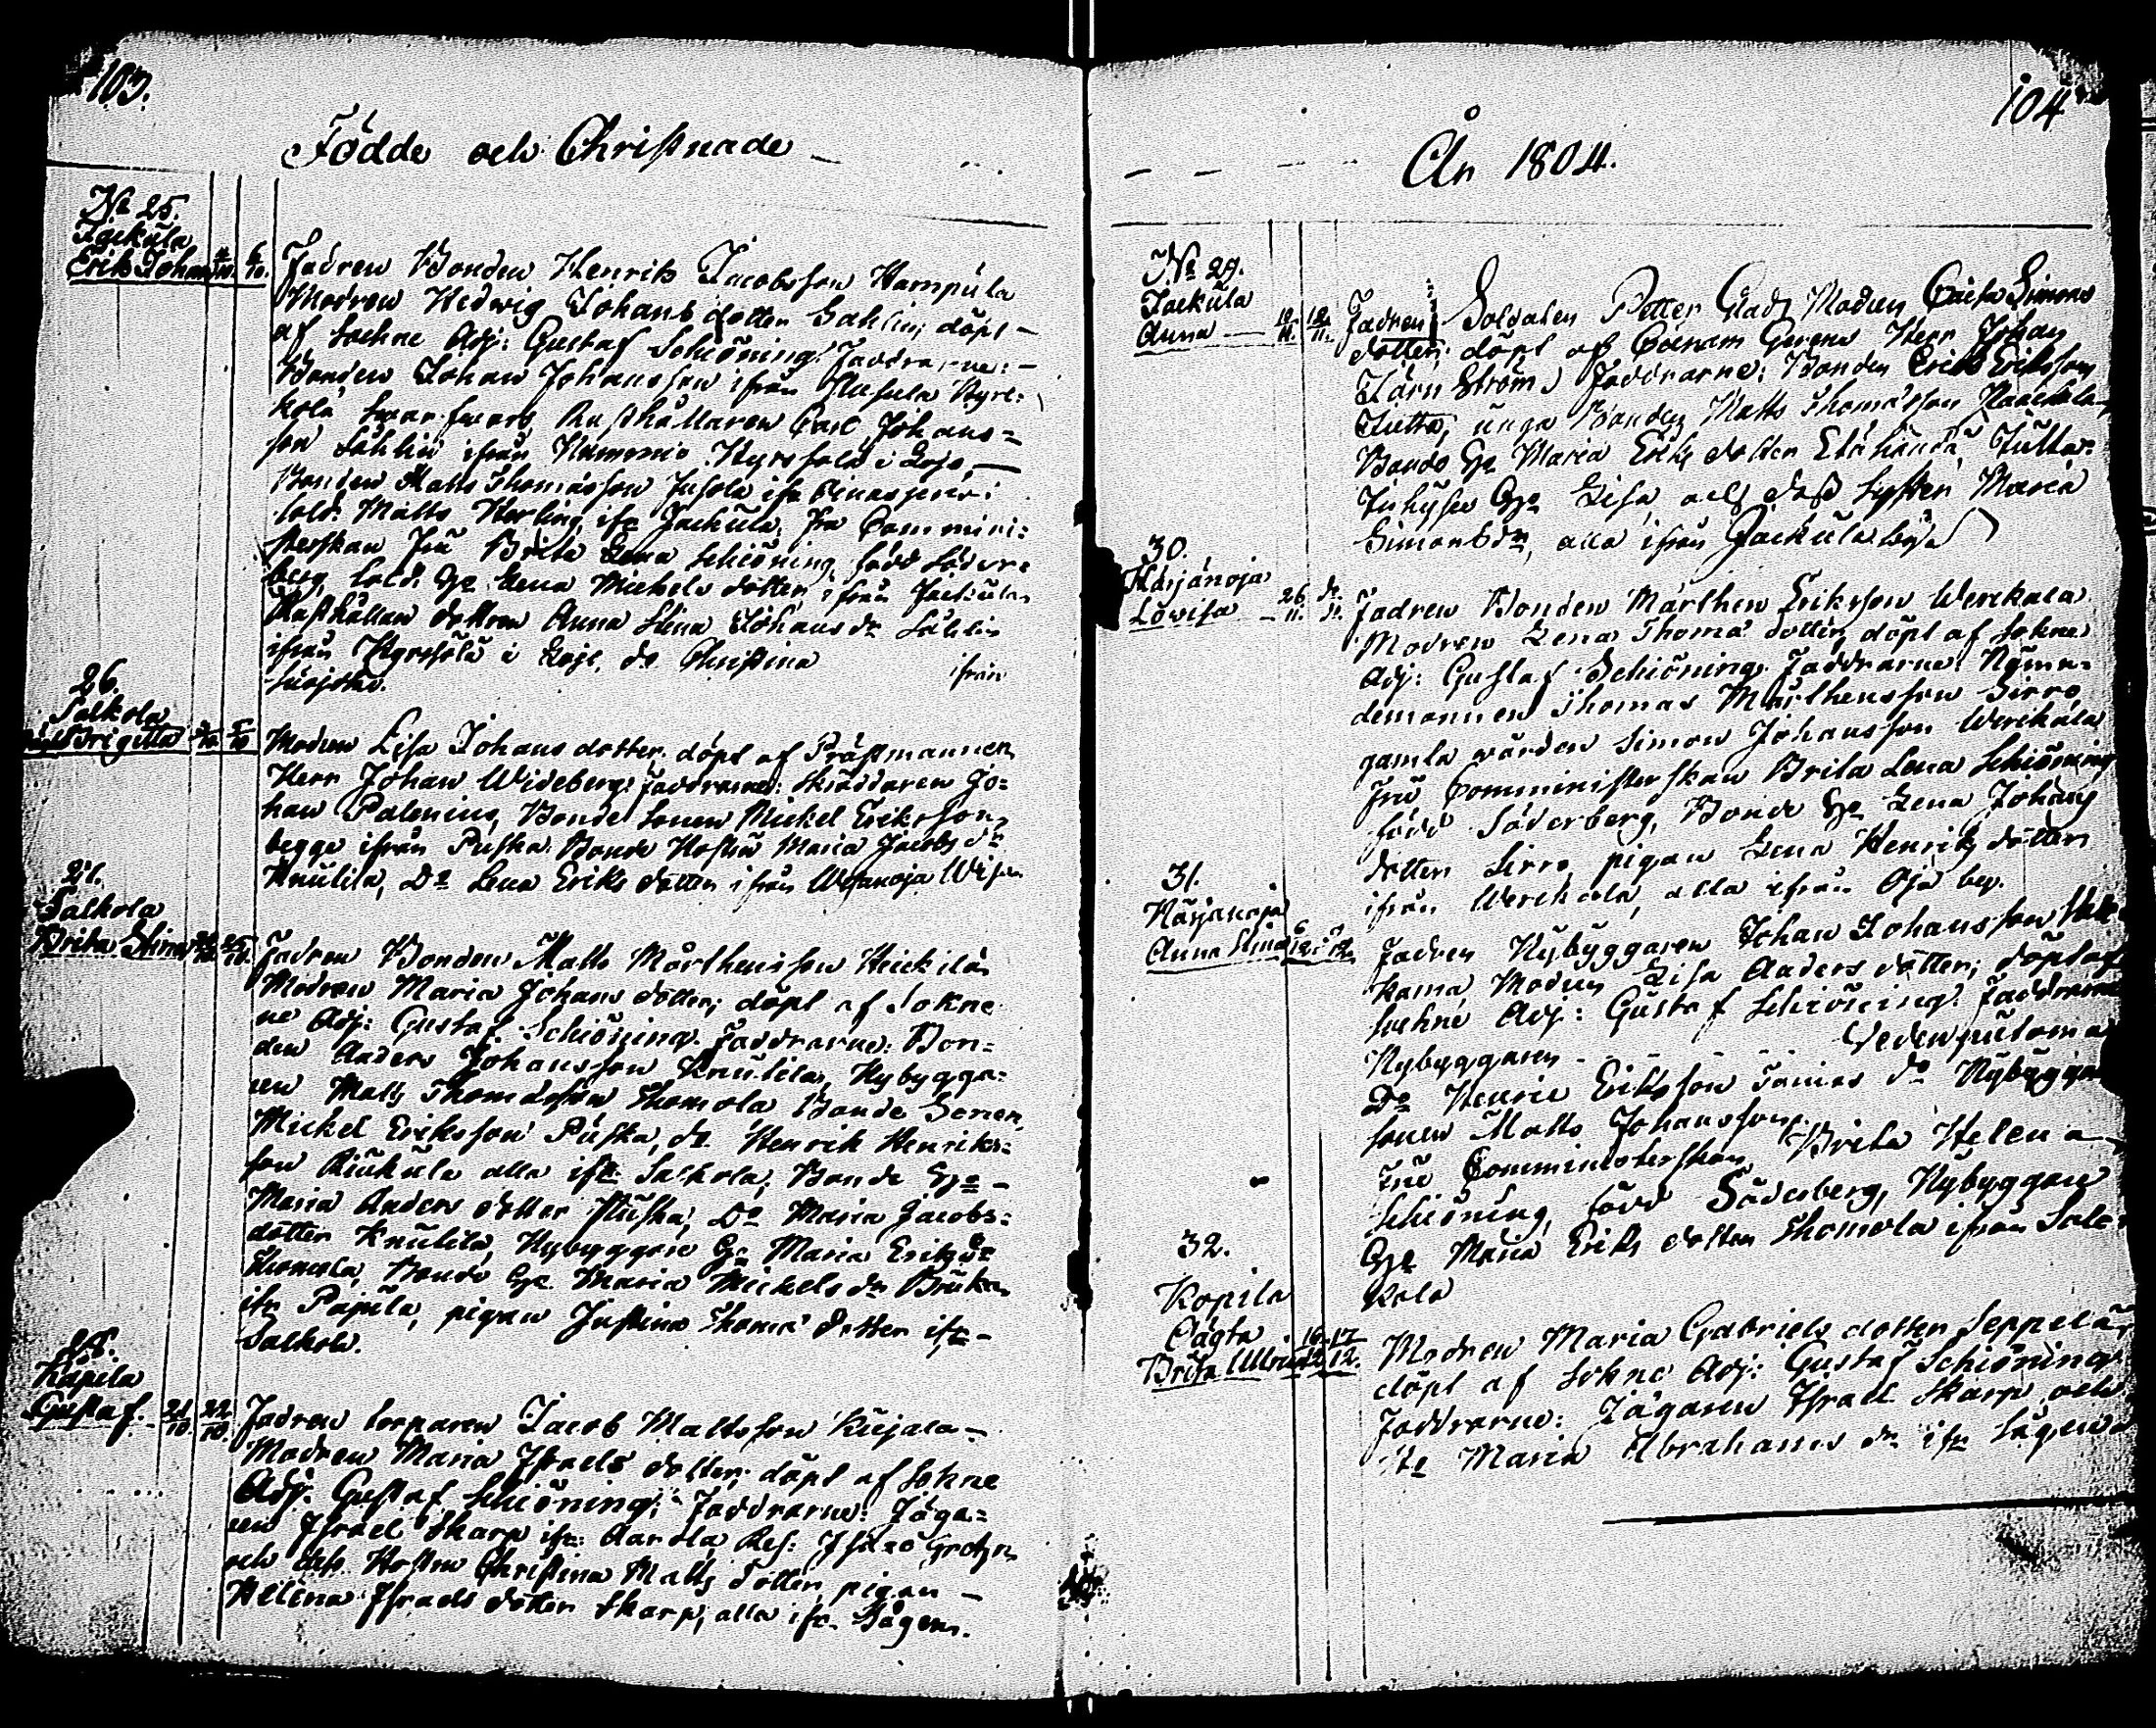 103.
Födde och Christnade
No 25.
Jackula
Erik Johan 4/10. 6/10.
Fadren Bonden Henrik Jacobsson Hampula
Modren Hedwig Johans dotter Sahlin; döpt
af Sochne Adj: Gustaf Schiöning. Faddrarne:
Bonden Johan Johansson ifrån Kyrc:
kolä Rusthållaren Carl Johans=
son Sahlin ifrån Kyrcfola i Lojo,
Bonden Matts Thomasson Jusola ifr
Sold. Matts Herling ifr Jackula, fru Commini:
sterskan Fru Brita Lena Schiöning född Söder=
berg, Sold. Hu Lena Mickels dotter, ifrån Jackula,
Rusthållare dottren Anna Stina Johans dr Sahlin
ifrån Kyrcfolä i Lojo, do Christina ifrån
26.
Salkola
Brigitta 5/10
Modren Lisa Johans dotter, döpt af Prästmannen
Herr Johan Wideberg: Faddrarne: Skräddaren Jo=
han Palenius, Bonde Sonen Mickel Eriksson,
begge ifrån Puska. Bonde Hustru Maria Jacobs dr
Knulila, Do Lena Eriks dotter ifrån Wesanoja
27.
Salkola
Brita Stina
Fadren Bonden Matts Mårthensson Heickilä,
Modren Maria Johans dotter; döpt af Sokne
ne Adj: Gustaf Schiöning. Faddrarne: Bon=
den Anders Johansson Knulila, Nybygga=
ren Matts Thomasson Thomola Bonde Sonen,
Mickel Eriksson Puska, do Henrik Henriks=
son Riukula alla ifr Salkola, Bonde Hu
Maria Anders dotter Puska, Do Maria Jacobs=
dotter Knulila, Nybyggare Hu Maria Eriks dr
Thomola, Bonde Hu Maria Mickels dr
ifr Pajula, pigan Justina Thomas dotter ifr
Salkola.
28.
Kåpila
Gustaf. 21/10. 22/10.
Fadren torparen Jacob Mattsson Kujala
Modren Maria Israels dotter; döpt af Sokne
Adj. Gustaf Schiöning; Faddrarne: Jäga=
ren Israel Skarp ifr: Res:
och dess Hustru Christina Matts dotter, pigan
Helena Israels dotter Skarp, alla ifr Sågen.
104
År 1804.
No 29.
Jackula
Anna 10/11. 12/11.
Fadren Soldaten Petter Glad, Modren Caisa Simons
dotter; döpt af Herr Johan
Tärnström. Faddrarne: Bonden Erik Eriksson
Tutta, unga Bonden Matts Thomasson
Bonde Hu Maria Eriks dotter
Hu Lisa, och dess Syster Maria
Simons dr, alla ifrån Jackula by
30.
Härjänoja
Lovisa 26/11. do
Fadren Bonden Mårthen Eriksson Werckala
Modren Lena Thoma dotter, döpt af Sokne
Adj: Gustaf Schiöning. Faddrarne: Näm=
demannen Thomas Mårthensson Sirro,
gamla wärden Simon Johansson Werckala
Fru Comministerskan Brita Lena Schiöning
född Söderberg, Bonde Hu Lena Johans
dotter Sirro, pigan Lena Henriks dotter
ifrån Werckala, alla ifrån Oja by.
31.
Härjänoja
Anna Stina 6/12. 7/12
Fadren Nybyggaren Johan Johansson
Modren Lisa Anders dotter; döpt af
Sochne Adj: Gustaf Schiöning. Faddrarne
Nybyggaren
Do Henric Eriksson do Nybyggare
sonen Matts Johansson, Brita Helena
Fru Comministerskan
Schiöning, född Söderberg, Nybyggare
Hu Maria Eriks dotter Thomola ifrån Salc=
kola
32.
Kopila
Oägta
Brita Ulrica 16/12. 17/12.
Modren Maria Gabriels dotter Seppelä,
döpt af Sokne Adj: Gustaf Schiöning
Faddrarne: Jägaren Israel Skarp, och
Maria Abrahams dr ifr Sågen